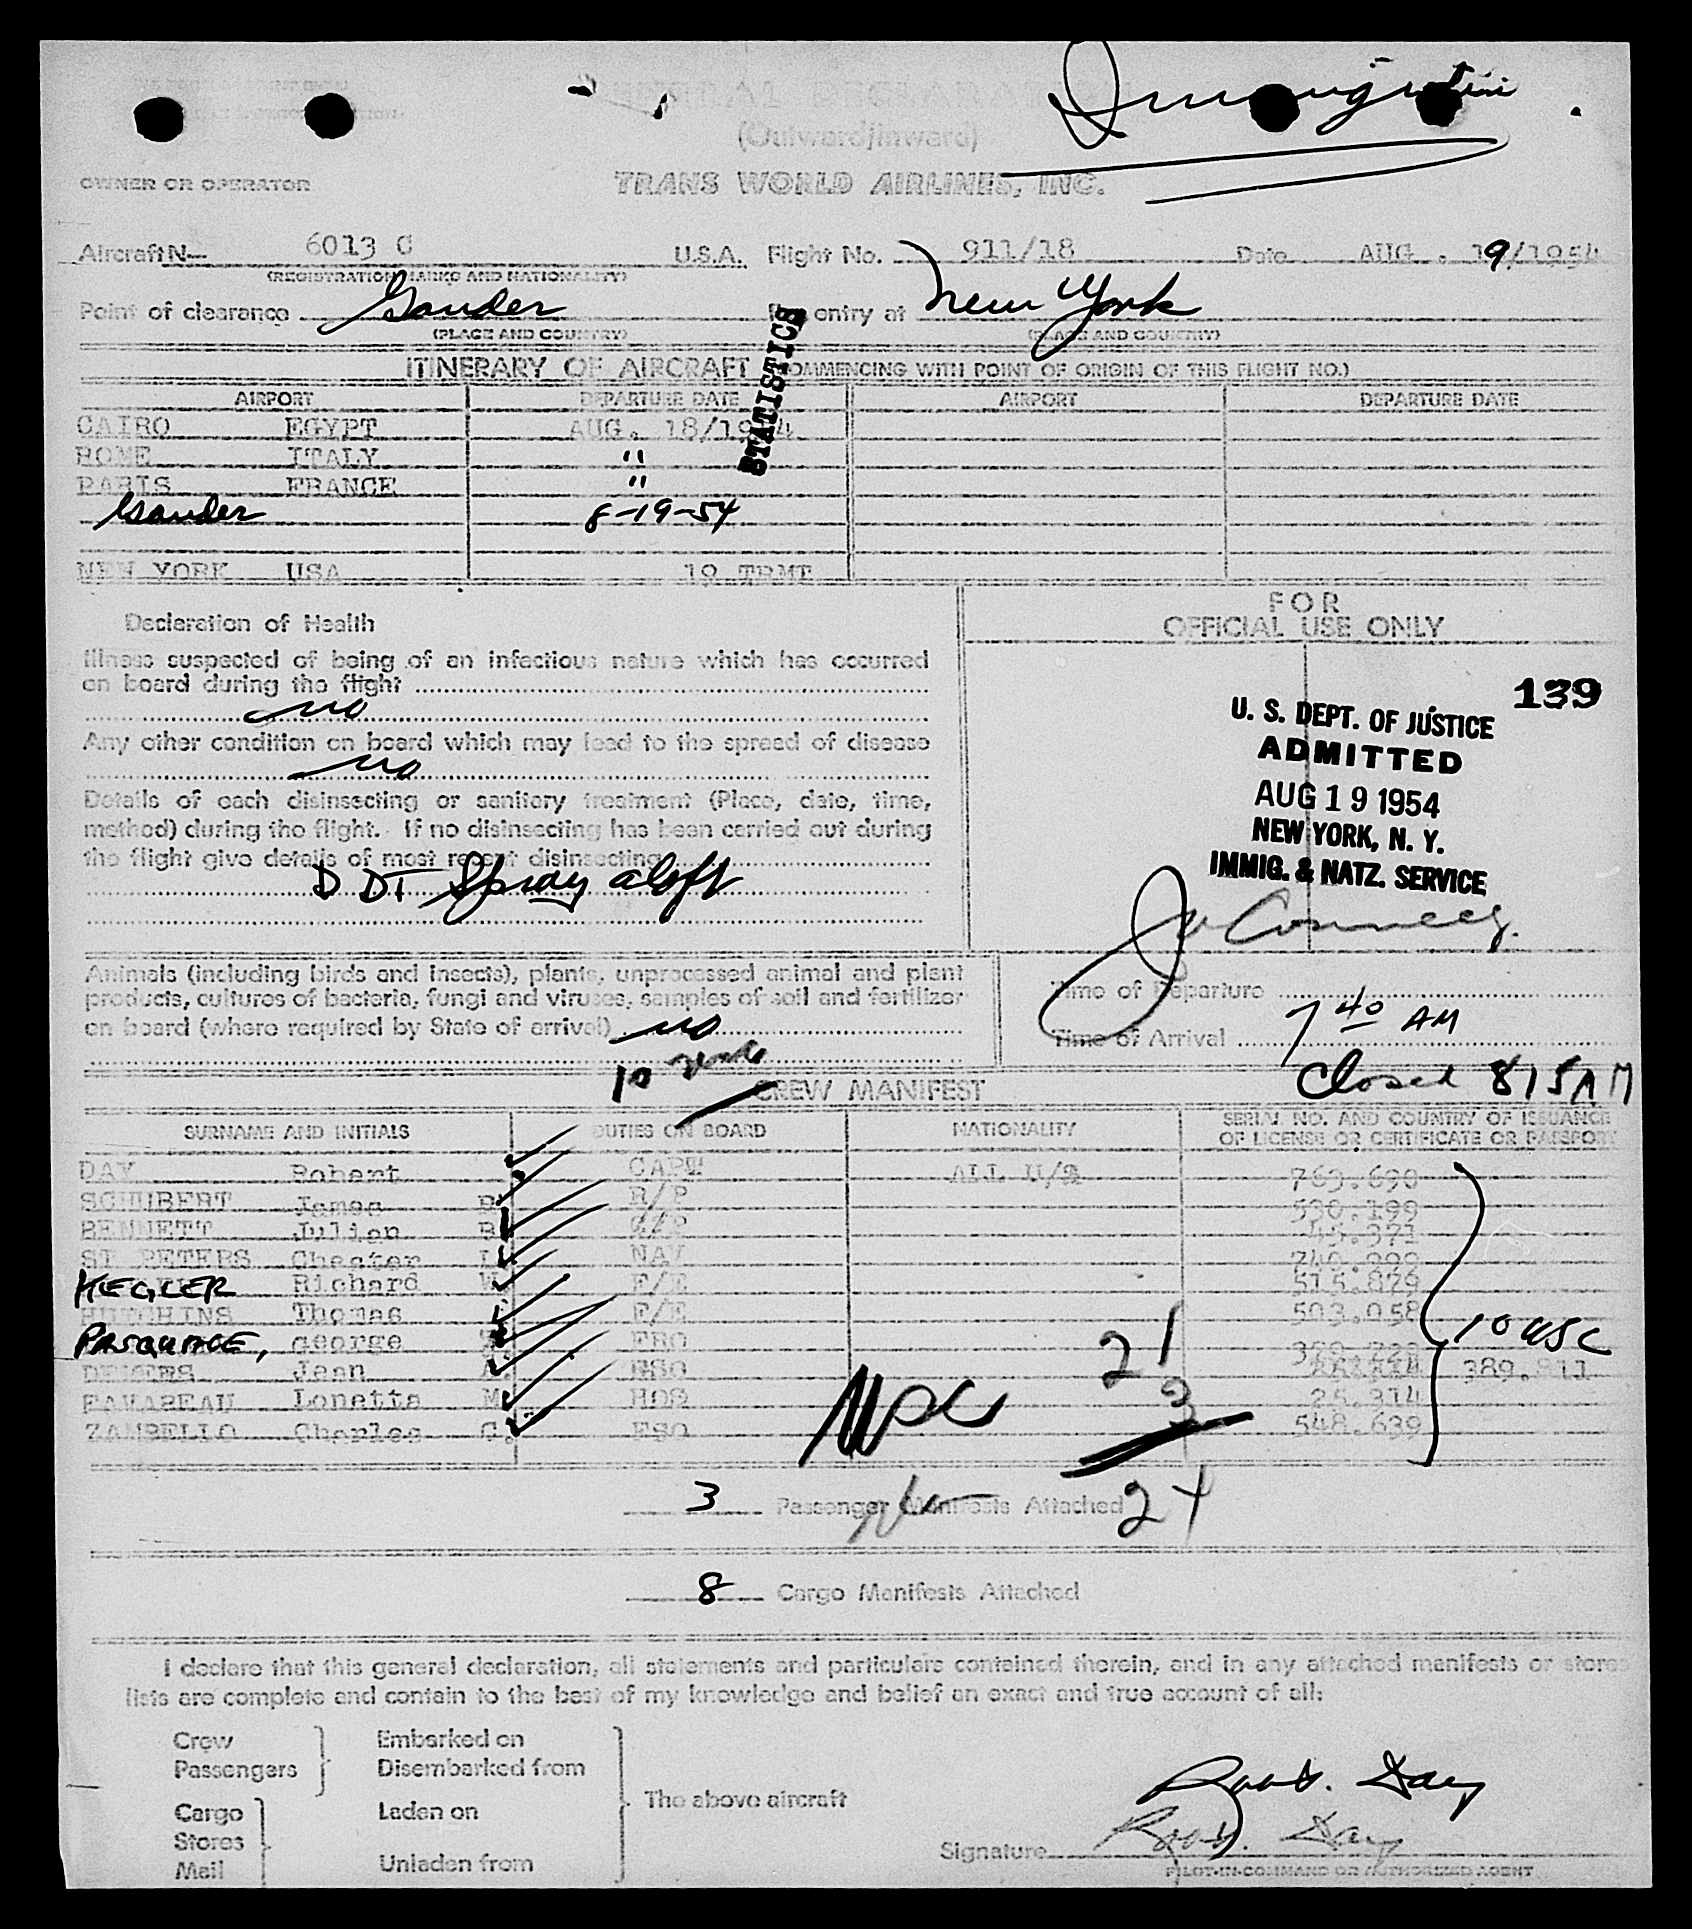 Immigration
GENERAL DECLARATION
(Outward/Inward)
OWNER OR OPERATOR TRANS WORLD AIRLINES, INC.
Aircraft N— 6013 C U.S.A. Flight No. 911/18 Date AUG. 19/1954
(REGISTRATION MARKS AND NATIONALITY)
Point of clearance Gander For entry at New York
(PLACE AND COUNTRY) (PLACE AND COUNTRY)
STATISTICS
ITINERARY OF AIRCRAFT (COMMENCING WITH POINT OF ORIGIN OF THIS FLIGHT NO.)
AIRPORT DEPARTURE DATE AIRPORT DEPARTURE DATE
CAIRO EGYPT AUG. 18/1954
ROME ITALY "
PARIS FRANCE "
Gander 8-19-54
NEW YORK USA 19 TRMT
Declaration of Health
FOR
OFFICIAL USE ONLY
Illness suspected of being of an infectious nature which has occurred
on board during the flight
no
Any other condition on board which may lead to the spread of disease
no
Details of each disinsecting or sanitary treatment (Place, date, time,
method) during the flight. If no disinsecting has been carried out during
the flight give details of most recent disinsecting
DDT Spray aloft
139
U. S. DEPT. OF JUSTICE
ADMITTED
AUG 19 1954
NEW YORK, N. Y.
IMMIG. & NATZ. SERVICE
Animals (including birds and insects), plants, unprocessed animal and plant
products, cultures of bacteria, fungi and viruses, samples of soil and fertilizer
on board (where required by State of arrival) no
Time of Departure
Time of Arrival 7 40 AM
Closed 815 AM
10
CREW MANIFEST
SURNAME AND INITIALS DUTIES ON BOARD NATIONALITY SERIAL NO. AND COUNTRY OF ISSUANCE
OF LICENSE OR CERTIFICATE OR PASSPORT
DAY Robert CAPT ALL U/S 763.690
SCHUBERT James B. R/P 530.199
BENNETT Julian B. 45.371
ST PETERS Chester L. NAV 740.999
HEGLER Richard W. F/E 515.829
HUTCHINS Thomas F/E 503.058
George FRO
Jean A. FSO 389.811
Lonetta M. HOS 25.314
ZAMBELLO Charles G. FSO 548.639
10 USC
21
3
24
3 Passenger Manifests Attached
8 Cargo Manifests Attached
I declare that this general declaration, all statements and particulars contained therein, and in any attached manifests or stores
lists are complete and contain to the best of my knowledge and belief an exact and true account of all:
Crew Embarked on
Passengers Disembarked from
The above aircraft
Cargo Laden on
Stores
Mail Unladen from
Robt. Day
Signature Robt. Day
PILOT-IN-COMMAND OR AUTHORISED AGENT